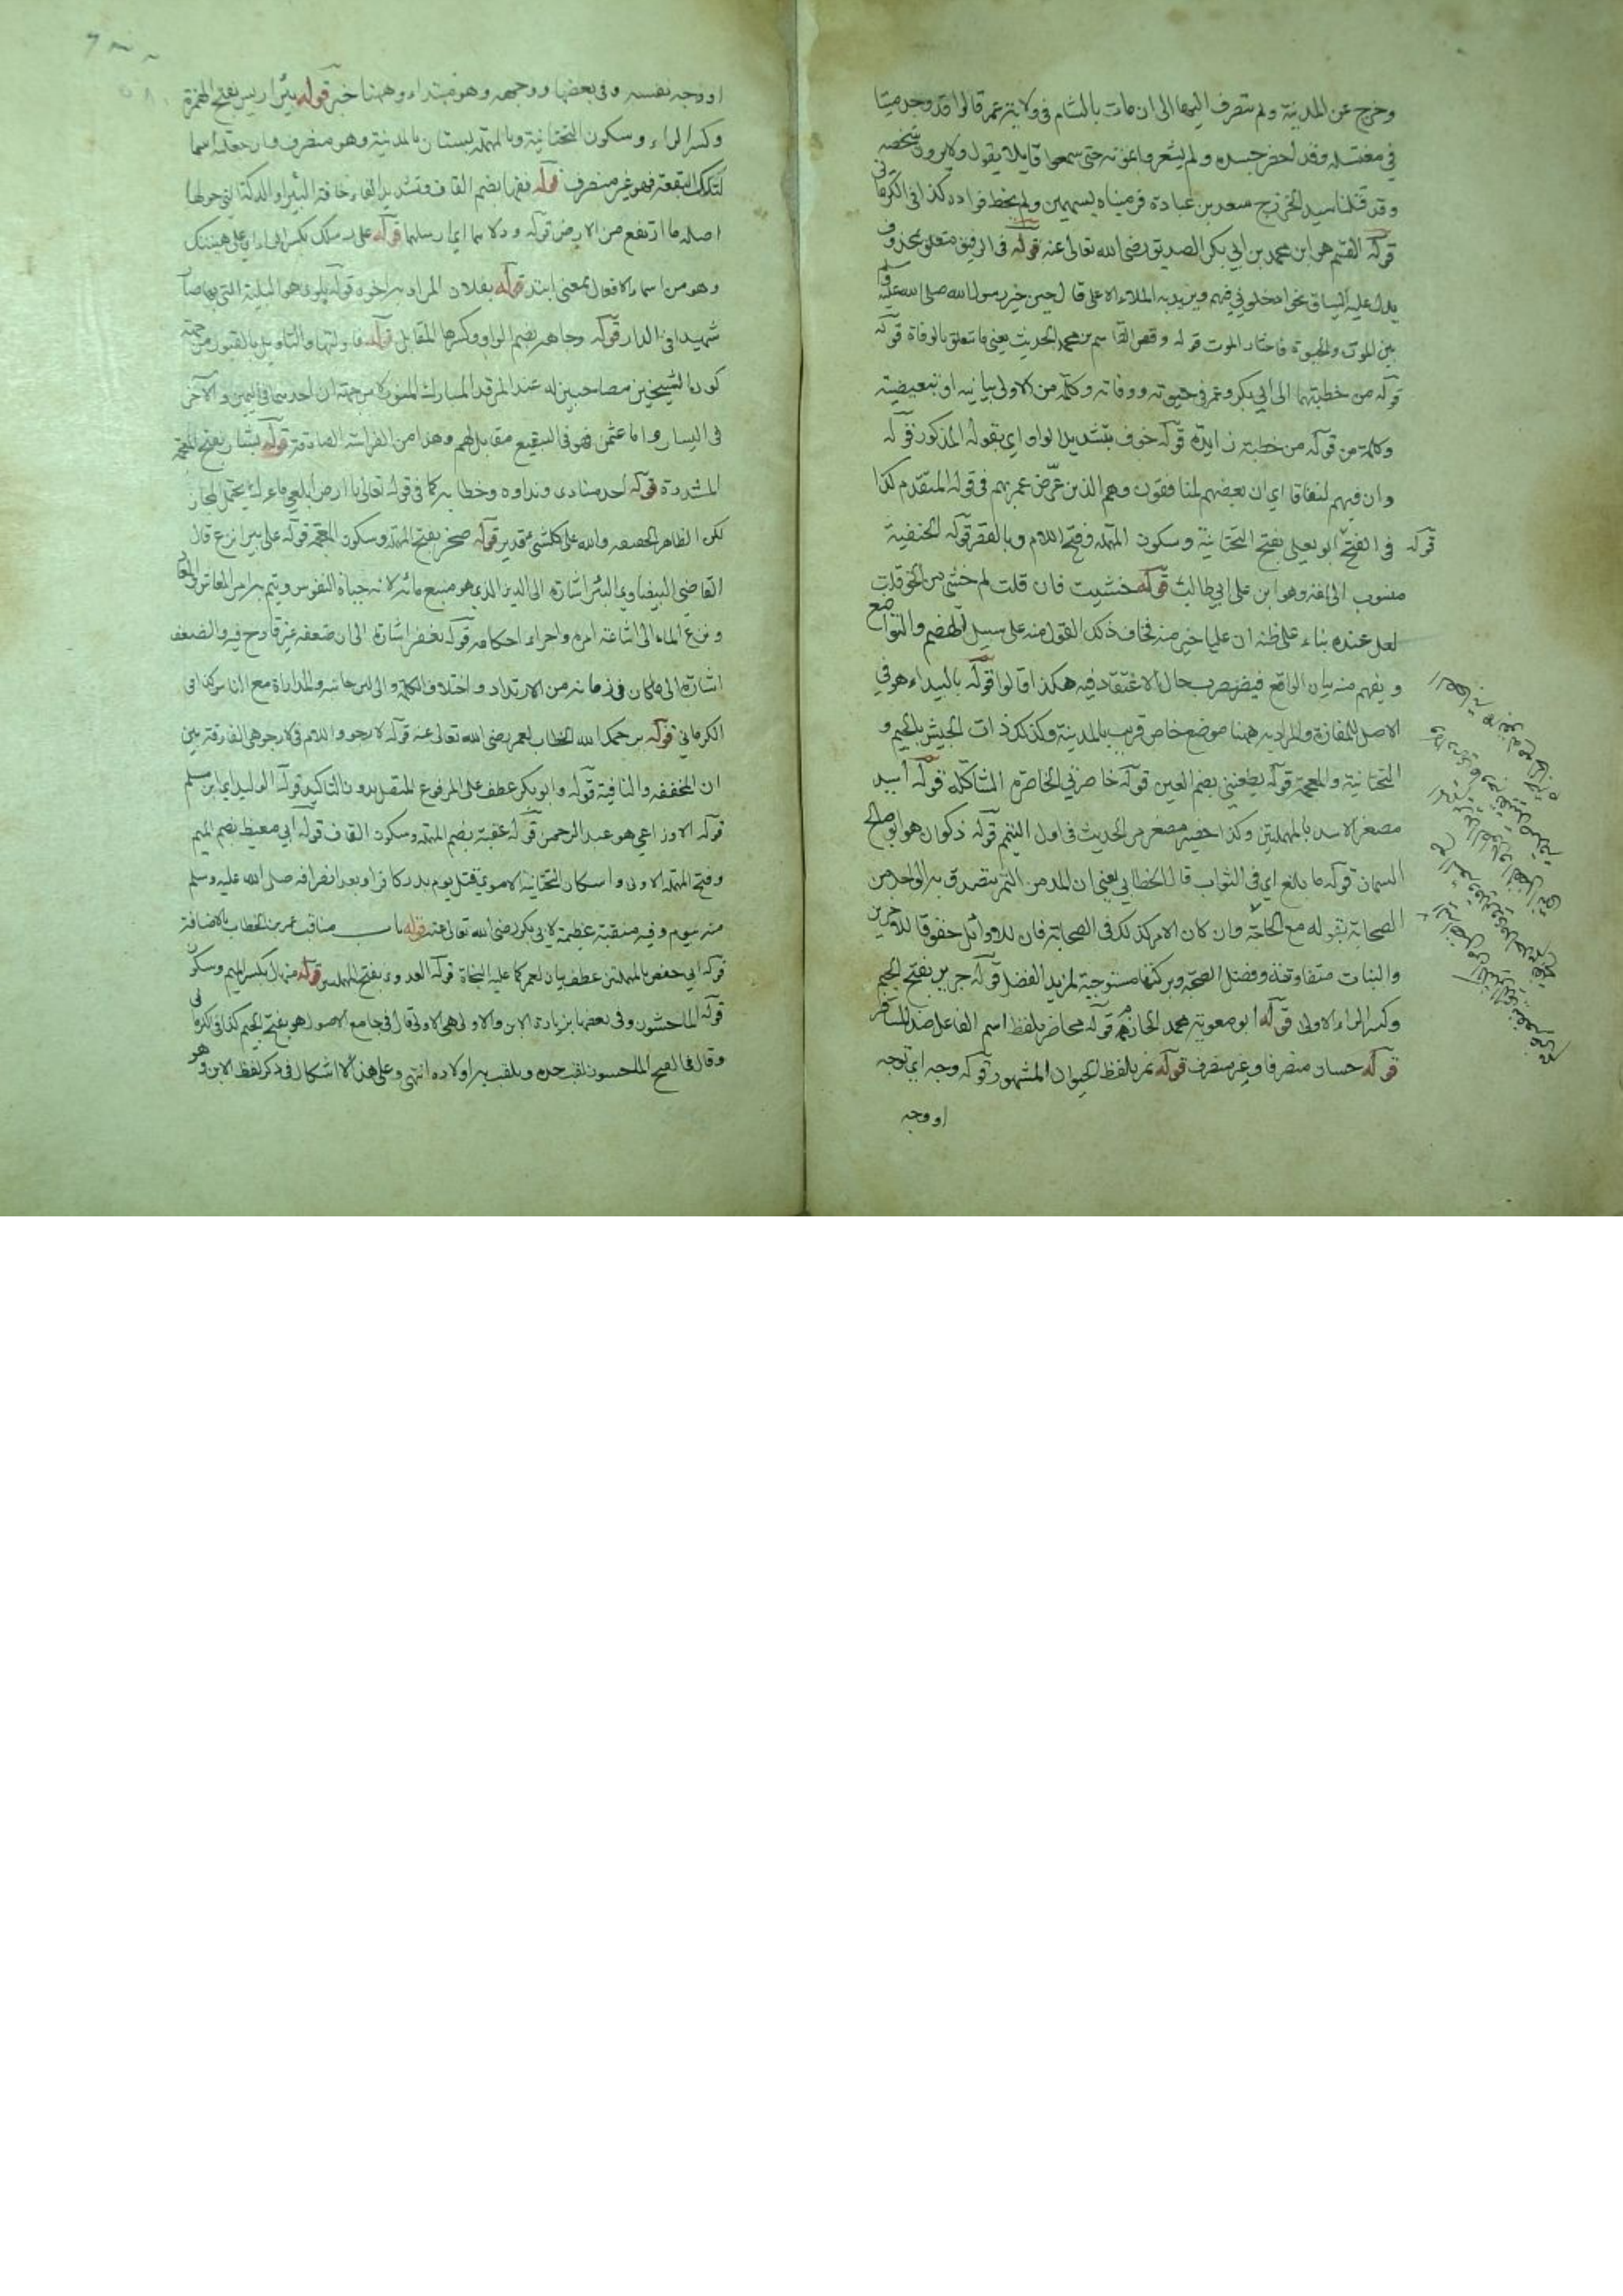 وخرج عن المدينة ولم ينصرف اليها الى ان مات بالشام في ولاية عمر قالوا قد وجد ميتا
في مغتسله وقد اخضر جسده ولم يشعروا بموته حتى سمعوا قايلا يقول ولا يرون شخصه
وقد قتلنا سيد الخزرج سعد بن عبادة فرميناه بسهمين ولم يخط فواده كذا في الكرماني
قوله القسم هو ابن محمد بن ابي بكر الصديق رضي الله تعالى عنه قوله في الرفيق متعلق بمحذوف
يدل عليه السياق نحو ادخلوني فيهم ويريد به الملاء الاعلى قال حين خير رسول الله صلى الله عليه وسلم
بين الموت والحيوة فاختار الموت قوله وقص القاسم بن محمد الحديث يعني ما يتعلق بالوفاة قوله
قوله من خطبتهما الى ابي بكر وعمر في حيوته ووفاته وكلمة من الاولى بيانيه او تبعيضية
وكلمة من قوله من خطبة زايدة قوله خوف بتشديد الواو اي بقوله المذكور قوله
وان فيهم لنفاقا اي ان بعضهم لمنافقون وهم الذين عرض عمر بهم في قوله المتقدم كذا
في الفتح ابو يعلى بفتح التحتانية وسكون المهملة وفتح اللام وبالقصر قوله الحنفية قوله
منسوب الى امه وهو ابن علي ابي طالب قوله خشيت فان قلت لم خشي من الحق قلت
لعل عنده بناء على ظنه ان عليا خير منه فخاف ذلك القول منه على سبيل الهضم والتواضع
ويفهم منه بيان الواقع فيضطرب حال الاعتقاد فيه هكذا قالوا قوله بالبيداء هو في
الاصل للمفازة والمراد به ههنا موضع خاص قريب بالمدينة وكذلك ذات الجيش بالجيم و
التحتانية والمعجمة قوله يطعنني بضم العين قوله خاصرتي الخاصرة الشاكلة قوله أسيد
مصغر الاسد بالمهملتين وكذا حضير مصغر مر الحديث في اول التيمم قوله ذكوان هو ابو صالح
السمان قوله ما بلغ اي في الثواب قال الخطابي يعني ان المد من التمر يتصدق به الواحد من
الصحابة بقوله مع الحاجة وان كان الامر كذلك في الصحابة فان للاوائل حقوقا للاخرين
والنيات متفاوتة وفضل الصحبة وبركتها مستوجبة لمزيد الفضل قوله جرير بفتح الجيم
وكسر الراء الاولى قوله ابو معوية محمد الخازم قوله محاضر بلفظ اسم الفاعل ضد المسافر
قوله حسان منصرفا وغير منصرف قوله نمر بلفظ الحيوان المشهور قوله وجه اي توجه
او وجه
او وجه نفسه وفي بعضها ووجهه وهو مبتداء وههنا خبر قوله بئر اريس بفتح الهمزة
وكسر الراء وسكون التحتانية وبالمهملة بستان بالمدينة وهو منصرف وان جعلت اسما
لتلك البقعة فهو غير منصرف قوله قفها بضم القاف وتشديد الفاء حافة البئر او الدكة التي حولها
اصله ما ارتفع من الارض قوله ودلاهما اي ارسلهما قوله على رسلك بكسر الراء اي على هينتك
وهو من اسماء الافعال بمعنى اتئد قوله بفلان المراد به اخوه قوله بلوى هو البلية التي بها صار
شهيدا في الدار قوله وجاهه بضم الواو وكسرها المقابل قوله فاولتها والتاويل بالقبور من جهة
كون الشيخين مصاحبين له عند المرقد المبارك المنور لا من جهة ان احدهما في اليمين والآخر
في اليسار واما عثمن فهو في البقيع مقابل لهم وهذا من الفراسة الصادقة قوله بشار بفتح المعجمة
المشددة قوله احد منادى ونداوه وخطابه كما في قوله تعالى يا ارض ابلعي ماءك يحتمل المجاز
لكن الظاهر الحقيقه والله على كل شئ قدير قوله صخر بفتح المهملة وسكون المعجمة قوله على بئر انزع قال
القاضي البيضاوي البئر اشارة الى الدين الذي هو منبع مائه لانه حياة النفوس ويتم به امر المعاش والمعاد
ونزع الماء الى اشاعة امره واجراء احكامه قوله يغفر اشارة الى ان ضعفه غير قادح فيه والضعف
اشارة الى ما كان في زمانه من الارتداد واختلاف الكلمة والى لين جانبه والمداراة مع الناس كذا في
الكرماني قوله يرحمك الله الخطاب لعمر رضي الله تعالى عنه قوله لارجو واللام في لارجو هي الفارقة بين
ان المخففه والنافية قوله وابو بكر عطف على المرفوع المتصل بدون التاكيد قوله الوليد اي ابن مسلم
قوله الاوزاعي هو عبد الرحمن قوله عقبة بضم المهملة وسكون القاف قوله ابي معيط بضم الميم
وفتح المهملة الاولى واسكان التحتانية الاموي قتل يوم بدر كافرا وبعد انصرافه صلى الله عليه وسلم
منه بيوم وفيه منقبة عظيمة لابي بكر رضي الله تعالى عنه قوله باب مناقب عمر بن الخطاب بالاضافة
قوله ابي حفص بالمهملتين عطف بيان لعمر كما عليه النحاة قوله العدوى بفتح المهملتين قوله منهال بكسر الميم وسكون
قوله الماجشون وفي بعضها بزيادة الابن والاولى هي الاولى قال في جامع الاصول هو بفتح الجيم كذا في الكرماني
وقال في الفتح الماجشون لقب جده ويلقب به اولاده انتهى وعلى هذا لا اشكال في ذكر لفظ الابن وهو